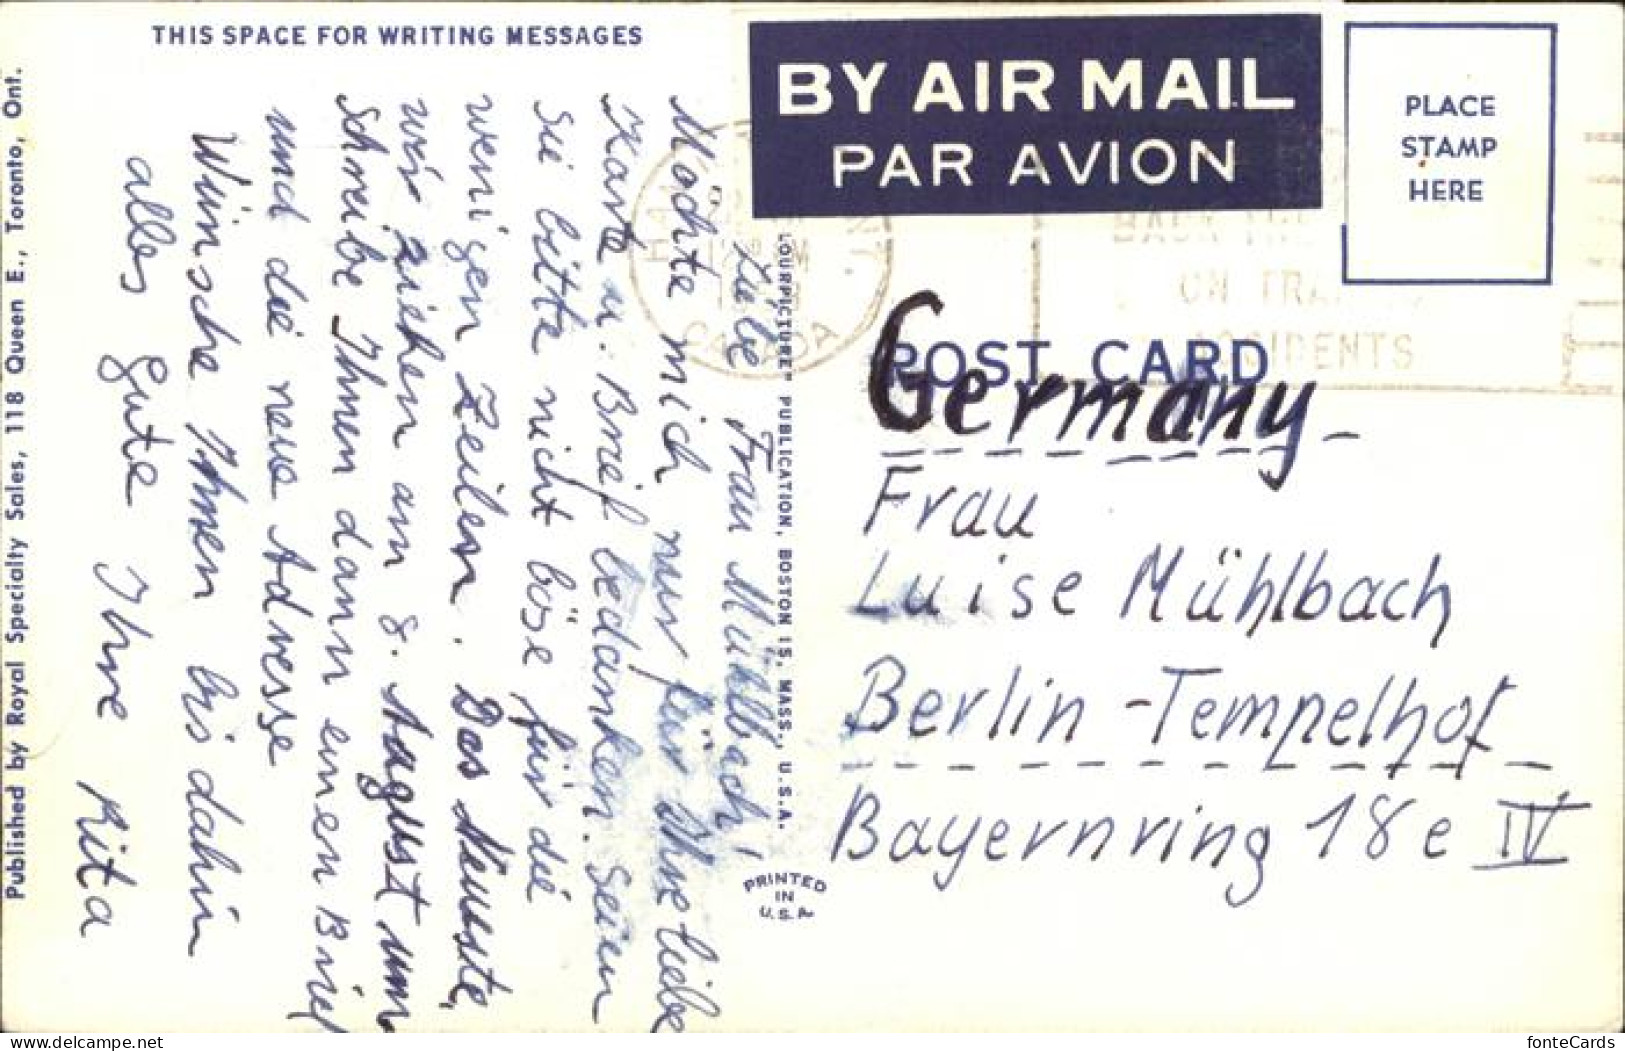 THIS SPACE FOR WRITING MESSAGES
Liebe Frau Mühlbach,
Möchte mich nur für Ihre liebe
Karte u. Brief bedanken. Seien
Sie bitte nicht böse für die
wenigen Zeilen. Das Neueste,
wir ziehen am 8. August um
Schreibe Ihnen dann einen Brief
und die neue Adresse
Wünsche Ihnen bis dahin
alles Gute Ihre Rita
Published by Royal Specialty Sales, 118 Queen E., Toronto, Ont.
PUBLICATION, BOSTON 15, MASS., U.S.A.
PRINTED
IN
U.S.A.
BY AIR MAIL
PAR AVION
PLACE
STAMP
HERE
CANADA
ON
ACCIDENTS
POST CARD
Germany
Frau
Luise Mühlbach
Berlin-Tempelhof
Bayernring 18e IV
www.delcampe.net
fonteCards